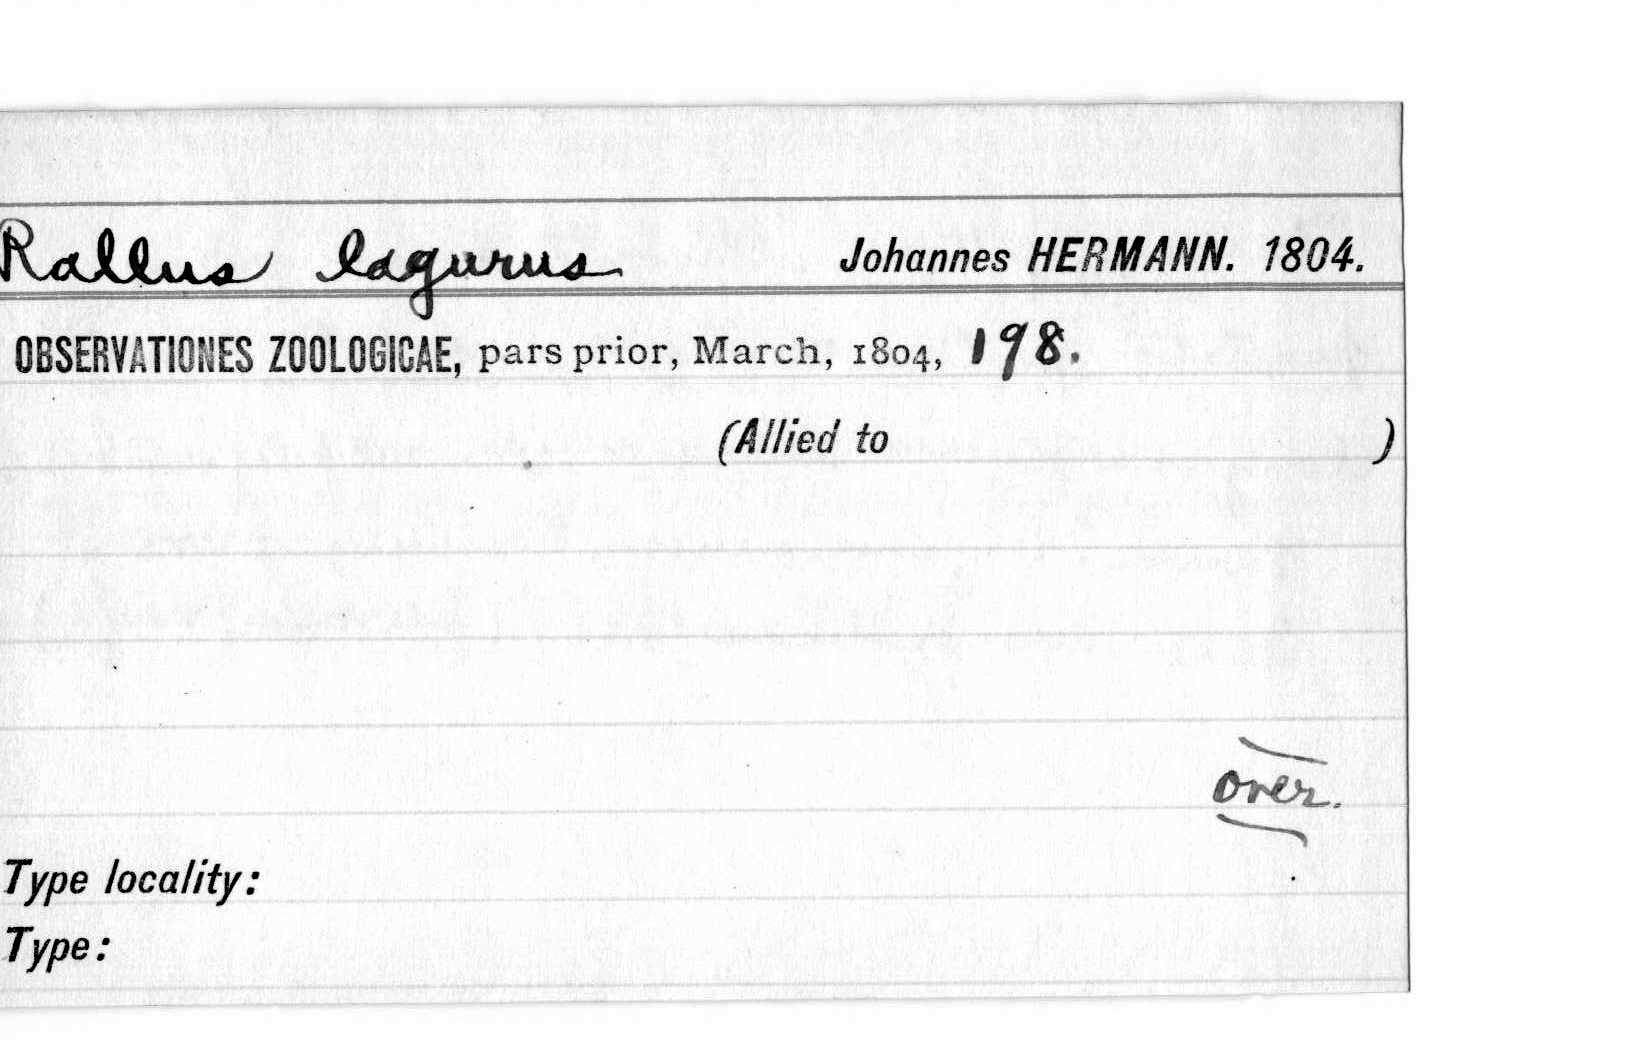 Rallus lagurus Johannes HERMANN. 1804.
OBSERVATIONES ZOOLOGICAE, pars prior, March, 1804, 198.
(Allied to )
over.
Type locality:
Type: